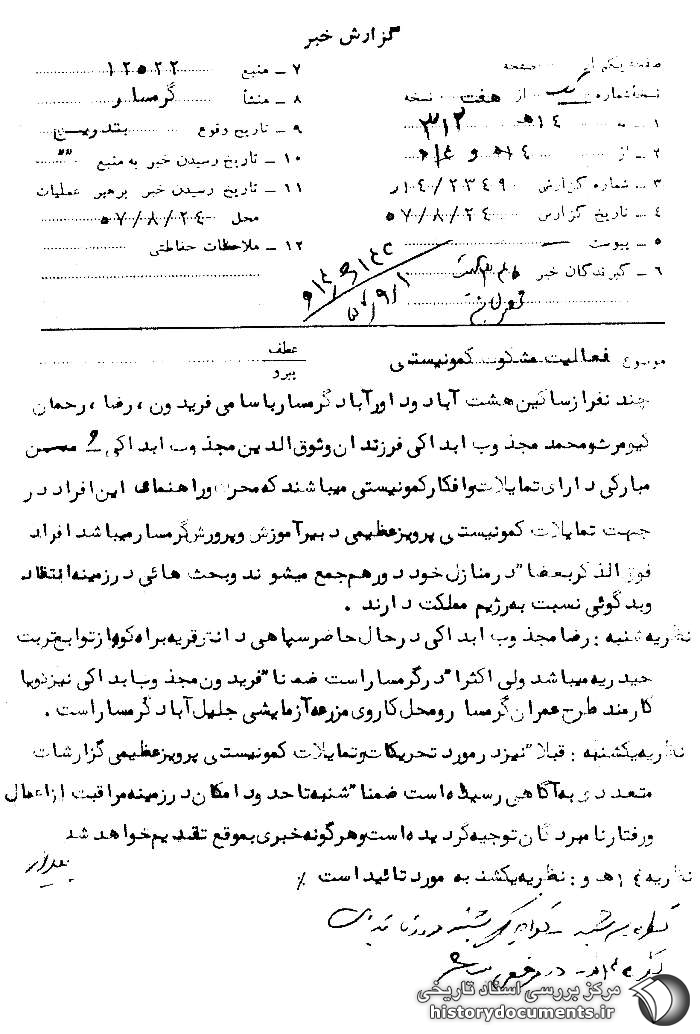 گزارش خبر
صفحه یکم از صفحه
نسخه شماره یک از هفت نسخه
۱ ـ به ۱۴هـ ۳۱۲
۲ ـ از ۱۴هـ و
۳ ـ شماره گزارش ۱۴/۲۳۴۹۰ر
۴ ـ تاریخ گزارش ۵۷/۸/۲۴
۵ ـ پیوست
۶ ـ گیرندگان خبر
۷ ـ منبع ۱۲۵۲۲
۸ ـ منشأ گرمسار
۹ ـ تاریخ وقوع بتدریج
۱۰ ـ تاریخ رسیدن خبر به منبع "
۱۱ ـ تاریخ رسیدن خبر برهبر عملیات
محل ۵۷/۸/۲۴
۱۲ ـ ملاحظات حفاظتی
۵۷/۹/۱
موضوع فعالیت مشکوک کمونیستی
عطف
پیرو
چند نفر از ساکنین هشت آباد و داورآباد گرمسار باسامی فریدون ، رضا ، رحمان
کیومرث و محمد مجذوب ابداکی فرزندان وثوق الدین مجذوب ابداکی و محسن
مبارکی دارای تمایلات و افکار کمونیستی میباشند که محرک و راهنمای این افراد در
جهت تمایلات کمونیستی پرویز عظیمی دبیر آموزش و پرورش گرمسار میباشد افراد
فوق الذکر بعضا" در منازل خود دور هم جمع میشوند و بحث هائی در زمینه انتقاد
و بدگوئی نسبت به رژیم مملکت دارند .
نظریه شنبه : رضا مجذوب ابداکی در حال حاضر سپاهی دانش قریه براه کوه از توابع تربت
حیدریه میباشد ولی اکثرا" در گرمسار است ضمنا" فریدون مجذوب ابداکی نیز
کارمند طرح عمران گرمسار و محل کار وی مزرعه آزمایشی جلیل آباد گرمسار است .
نظریه یکشنبه : قبلا" نیز در مورد تحریکات و تمایلات کمونیستی پرویز عظیمی گزارشات
متعددی به آگاهی رسیده است ضمنا" شنبه تا حدود امکان در زمینه مراقبت از اعمال
و رفتار نامبردگان توجیه گردیده است و هر گونه خبری بموقع تقدیم خواهد شد
نظریه ۱۴هـ و : نظریه یکشنبه مورد تائید است ٪
مرکز بررسی اسناد تاریخی
historydocuments.ir